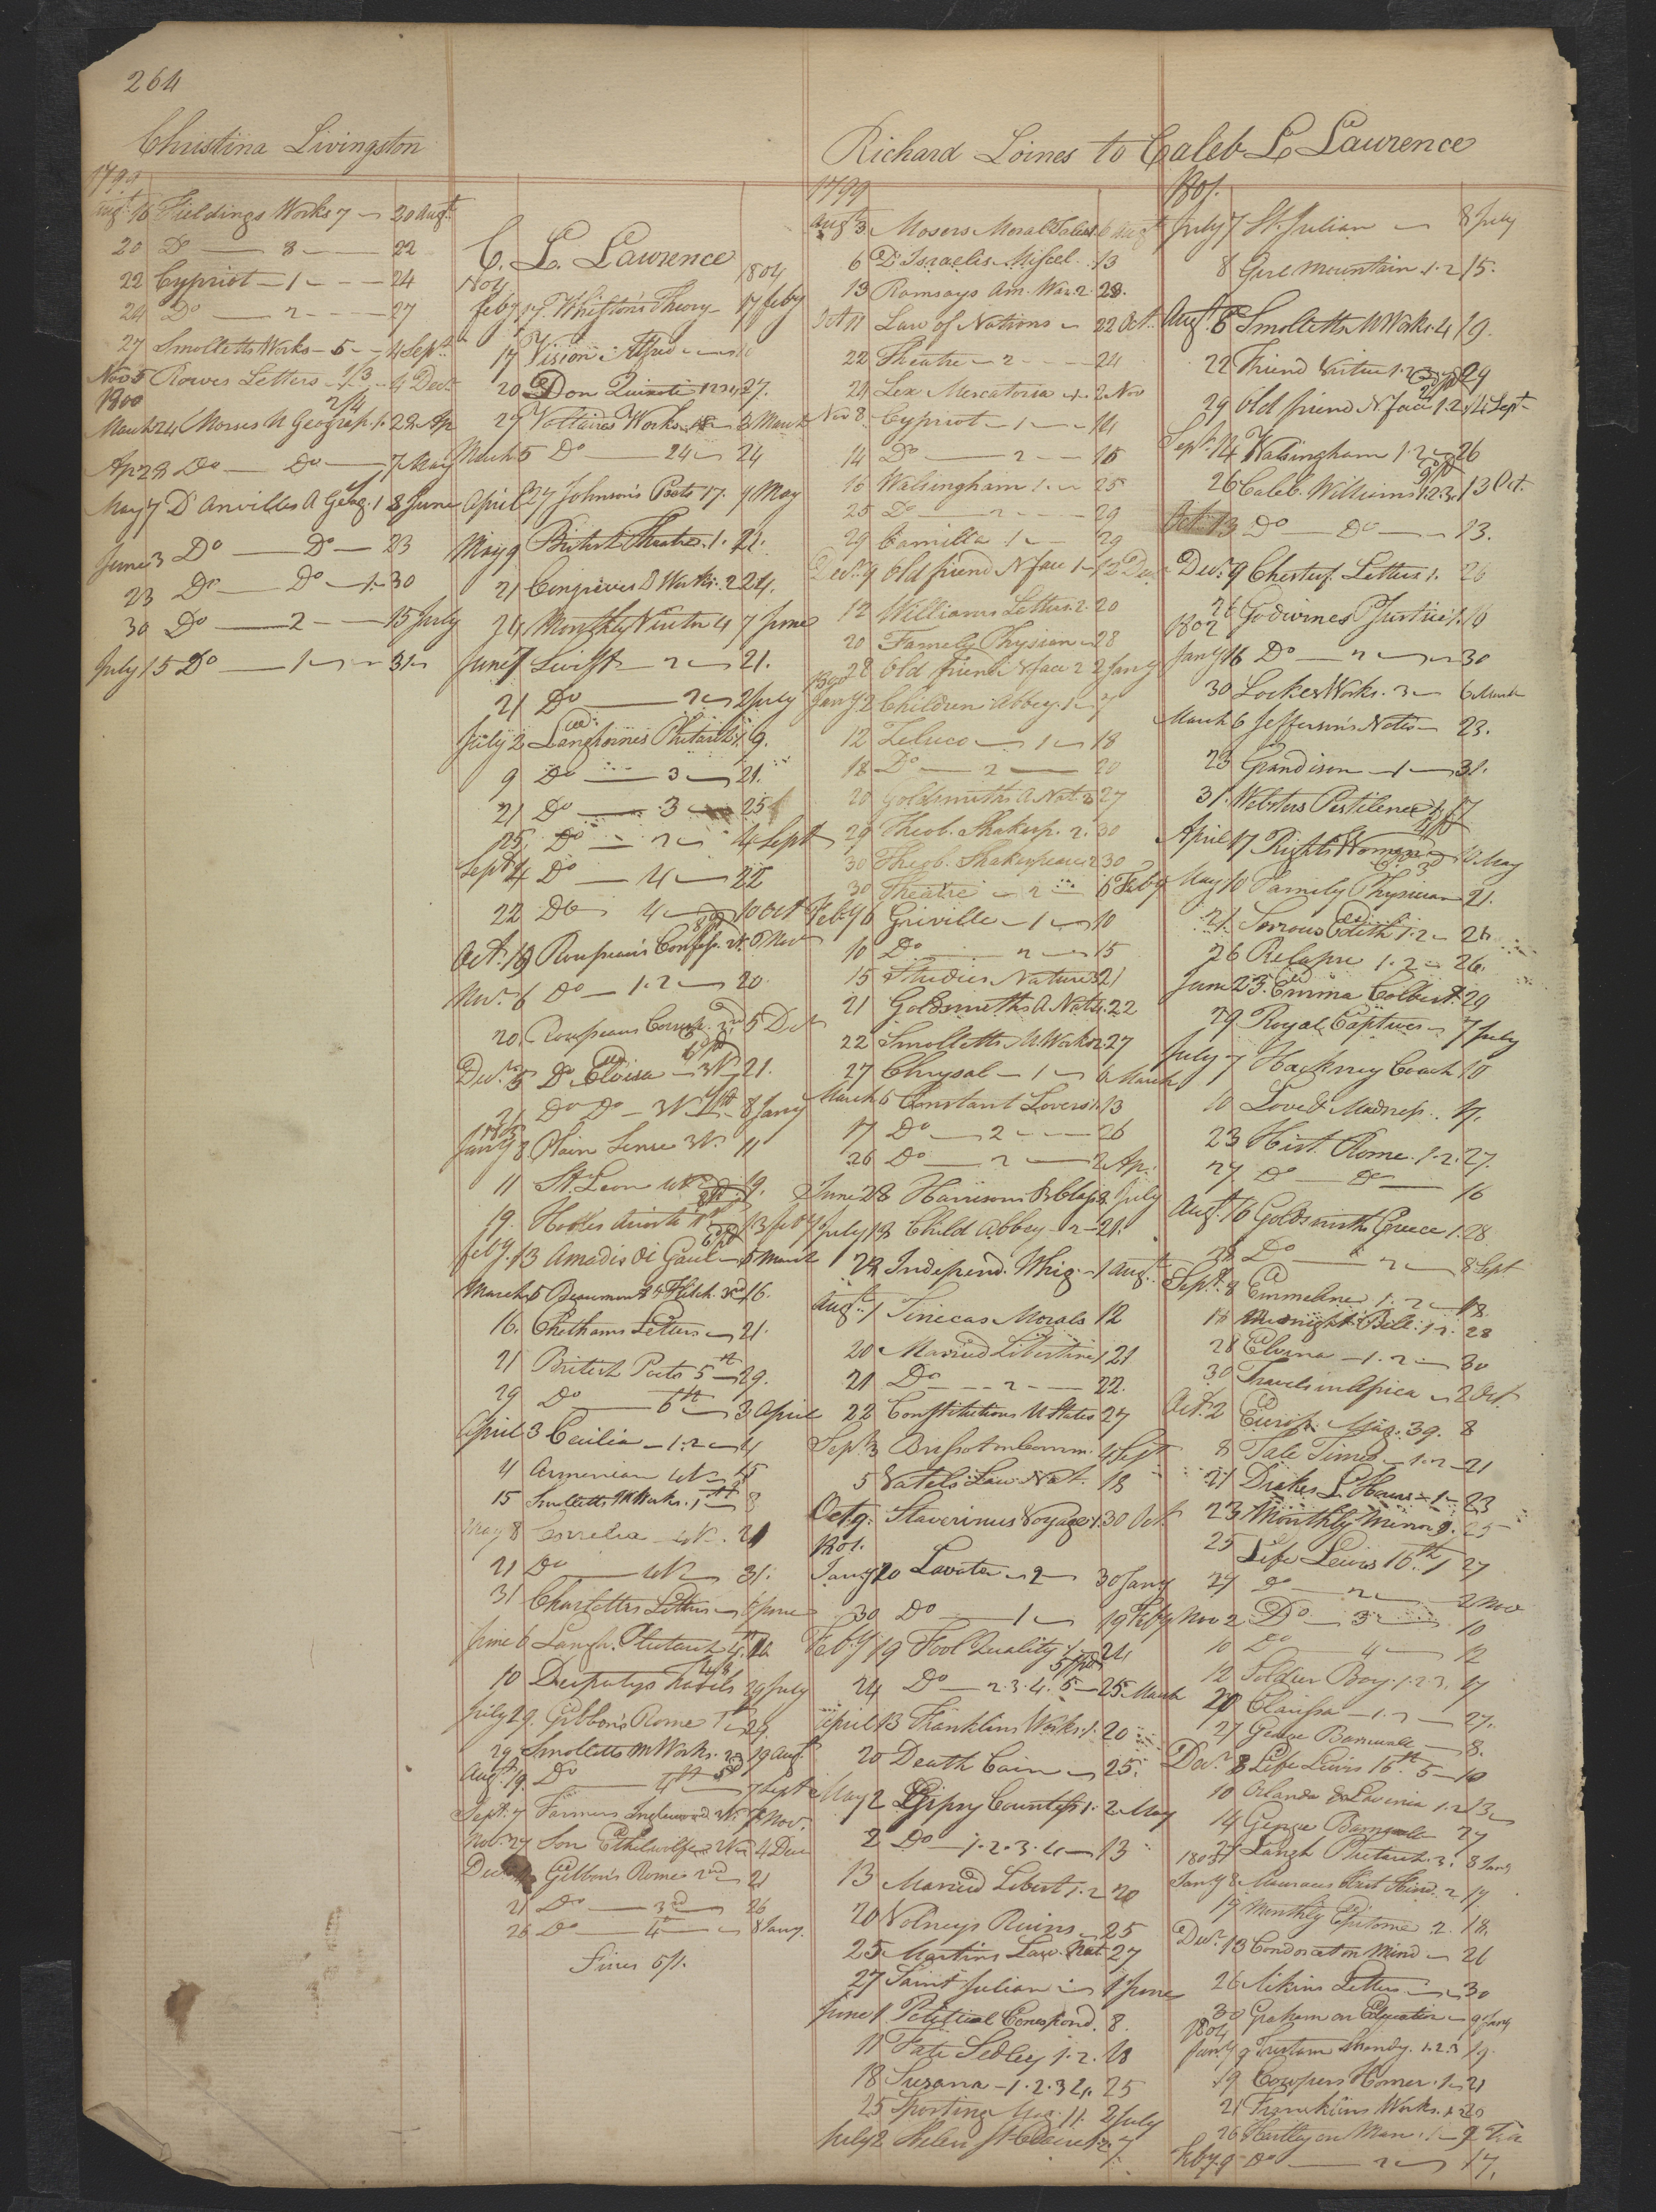 264
Christina Livingston
1799
Augt 16 Fieldings Works 7 20 Augt
20 Do 8 22
22 Cypriot 1 24
24 Do 2 27
27 Smolletts Works 5 4 Sept
Nov 5 Rowes Letters 4 Decr
1800
March 24 Morses U Geograp. 1. 28 Ap
Ap 28 Do Do 7 May
May 7 D'Anvilles A Geog. 1 3 June
June 3 Do Do 23
23 Do Do 1. 30
30 Do 2 15 July
July 15 Do 1 31
C. L. Lawrence
1804
Feby 17 Whiston's Theory 17 feby
17 Vision Alfred
20 Don Quixote 1234 27.
27 Voltaires Works 3 March
March 5 Do 24 24
April 27 Johnson's Poets 17. 9 May
May 9 British Theatre. 1. 21.
21 Congreves D Works. 2 24.
24 Monthly Visitor 4 7 June
June 7 Swift 2 21.
21 Do 2 2 July
July 2 Langhornes Plutarch 1. 9.
9 Do 3 21.
21 Do 3 25
25 Do 2 4 Sept
Sept 4 Do 4 22
22 Do 4 10 Oct
Oct. 10 Rousseau's Confess. 6 Nov
Nov. 6 Do 1.2 20
20 Rousseaus 5 Dec
Decr 5 Do Eloisa 3 V 21.
21 Do Do 3 V 8 Jany
1805
Jany 8 Plain Sense 3 V. 11
11 St. Leon 4 V 19.
19. Hooles Ariosto 13 feby
feby. 13 Amadis di Gaul 5 March
March 5 Beaumont & Fletch. 3rd 16.
16. Chathams Letters 21.
21 British Poets 5th 29.
29 Do 6th 3 April
April 3 Cecilia 1.2 4
4 Armenian 4 V 15
15 Smolletts M Works. 1st 8
May 8 4 V. 21
21 Do 4 V 31.
31 Charlottes Letters 6 June
June 6 Langh. Plutarch 4th 10
10 29 July
July 29. Gibbon's Rome 1st 29.
29. Smolletts M Works. 2d 19 Aug.
Augt 19. Do 4th 7 Sept
Sept. 7 Farmers Inglewood 2 V. 7 Nov.
Nov. 27 Son Ethelwolf 2 V 4 Dec
Dec Gibbon's Rome 2nd 21
21 Do 3rd 26
26 Do 4th 8 Jany.
Fines 5/1.
Richard Loines to Caleb L Lawrence
1799
Augt 3 Mosers Moral Tales 6 Augt
6 D'Israelis Miscel. 13
13 Ramsays Am. War. 2. 28.
Oct 11 Law of Nations 22 Oct.
22 Theatre 2 24
24 Lex Mercatoria 1. 2 Nov
Nov 8. Cypriot 1 14
14 Do 2 16
16 Walsingham 1. 25
25 Do 2 29
29 Camilla 1 29
Decr 9 Old friend N face 1 12 Dec
12 Williams Letters. 2. 20
20 Family Physician 28
28 Old friend N face 2 2 Jany
1800
Jany 2 Children Abbey. 1 7
12 Zeluco 1 18
18 Do 2 20
20 Goldsmiths A Nat. 3 27
29 Theob. Shakesp. 2. 30
30 Theob. Shakespeare 2 30
30 Theatre 2 6 Feby
Feby 6 Griville 1 10
10 Do 2 15
15 Studies Nature 3 21
21 Goldsmiths A Nat. 22
22 Smolletts M. Works 2 27
27 Chrysal 1 6 March
March 6 Constant Lovers 1 13
17 Do 2 26
26 Do 2 2 Ap.
June 28 Harrisons B Clas. 2 July
July 19 Child Abbey 2 21.
28 Independ. Whig 1 Augt
Augt 1 Senecas Morals 12
20 Married Libertine 1 21
21 Do 2 22.
22 Constitutions U States 27
Sept 3 Brissot on Comm. 4 Sept
5 Vatels Law Nat. 18
Oct. 9. Staverinus Voyage 1. 30 Oct.
1801.
Jany 20 Lavater 2 30 Jany
30 Do 1 19 Feby
Feby 19 Fool Quality 1 24
24 Do 2.3.4.5 25 March
April 13 Franklins Works. 1. 20
20 Death Cain 25.
May 2 Gipsy Countess 1. 2 May
2 Do 1.2.3.4 13
13 Married Libert 1.2 20
20 Volneys Ruins 25
25 Martins Law. Nat 27
27 Saint Julian 1 June
June 1 Political Correspond. 8.
11 Fate Sedley 1.2. 18
18 Suzana 1.2.3 4. 25
25 Sporting Mag. 11. 2 July
July 2 Helen St Clair 1.2 7
1801.
July 7 St. Julian 8 July
8 Gerl Mountain. 1.2 15.
Augt 6 Smolletts W Works. 4 19.
22 Friend Virtue 1.2.3 29
29 Old friend N face 1.2. 14 Sept
Sept. 14 Walsingham 1.2 26
26 Caleb Williams 1.2.3. 13 Oct.
Oct. 13 Do Do 13.
Decr 9 Chesterf. Letters 1. 26
26 Godwines P Justice 1. 16
1802
Jany 16 Do 2 30
30 Lockes Works. 3 6 March
March 6 Jefferson's Notes 23.
23 Grandison 1 31.
31. Websters Pestilence 17
April 17 Rights Woman 10 May
May 10 Family Physician 21.
21. Sorrows Edith 1.2 26
26 Relapse 1.2 26
June 23. Emma Colbert 29
29 Royal Captives 7 July
July 7 Hackney Coach 10
10 Love & Madness. 17.
23 Hist. Rome. 1.2. 27.
27 Do Do 16
Augt 16 Goldsmiths Greece 1. 28
28 Do 2 8 Sept
Sept. 8 Emmeline 1.2 18
18 Midnight Bell. 1.2. 28
28 Elvina 1.2 30
30 Travels in Africa 2 Oct.
Oct. 2 Europ. Mag. 39. 8
8 Tale Times 1.2 21
21 Drakes L Hours 1 23
23 Monthly Mirror 9. 25
25 Life Lewis 16th 1 27
27 Do 2 2 Nov
Nov 2 Do 3 10
10 Do 4 12
12 Soldier Boy 1.2.3. 17
20 Clarissa 1.2 27.
27 George Barnwell 8.
Decr 8 Life Lewis 16th 5 10
10 Orlando & Lavinia 1.2 13
14 George Barnwell 27
27 Langh Plutarch. 3. 8 Jany
1803
Jany 8 2 19
19 Monthly Epitome 2. 18
Decr 13 Condorcet on Mind 26
26 Aikins Letters 30
30 Graham on Education 9 Jany
1804
Jany 9 Tristam Shandy. 1.2.3 19.
19 Cowpers Homer. 1 21
21 Franklins Works. 1. 26
26 Hartley on Man. 1 9 Feb
Feby. 9 Do 2 17.